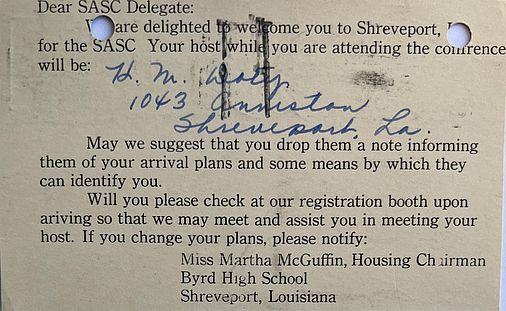 Dear SASC Delegate:
We are delighted to welcome you to Shreveport,
for the SASC Your host while you are attending the conference
will be: H. M. Doty
1043 Anniston
Shreveport, La.
May we suggest that you drop them a note informing
them of your arrival plans and some means by which they
can identify you.
Will you please check at our registration booth upon
ariving so that we may meet and assist you in meeting your
host. If you change your plans, please notify:
Miss Martha McGuffin, Housing Chairman
Byrd High School
Shreveport, Louisiana